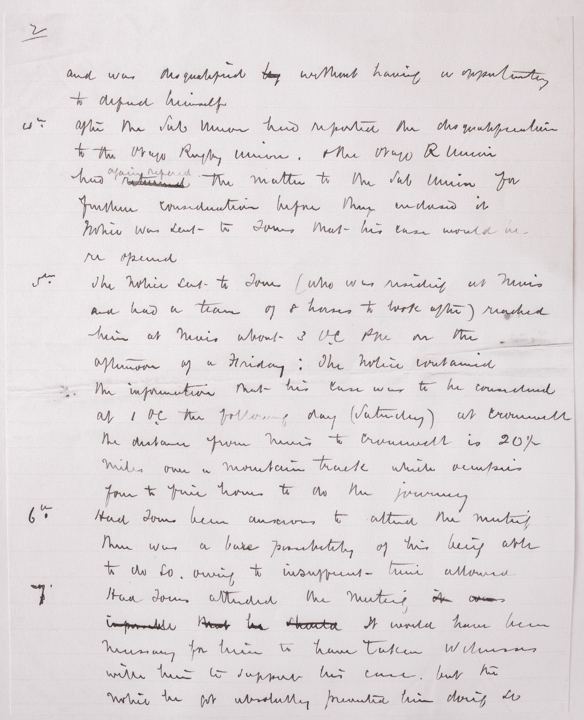 2
and was disqualified by without having a oppertunity
to defend himself
4th After the Sub Union had reported the disqualification
to the Otago Rugby Union. & the Otago R Union
had returned again referred the matter to the Sub Union for
further consideration before they endorsed it
Notice was sent to Jones that his case would be
re opened
5th The Notice sent to Jones (who was residing at Nevis
and had a team of 8 horses to look after) reached
him at Nevis about 3 OC on the
afternoon of a Friday; The Notice contained
the information that his case was to be considered
at 1 OC the following day (Saturday) at Cromwell
The distance from Nevis to Cromwell is 20½
miles over a mountain track which occupies
four to five hours to do the journey
6th Had Jones been anxious to attend the meeting
there was a bare possibility of his being able
to do so. owing to insufficient time allowed
7 Had Jones attended the meeting it was
impossible that he should It would have been
necessary for him to have taken witnesses
with him to support his case. but the
notice he got absolutely prevented him doing so